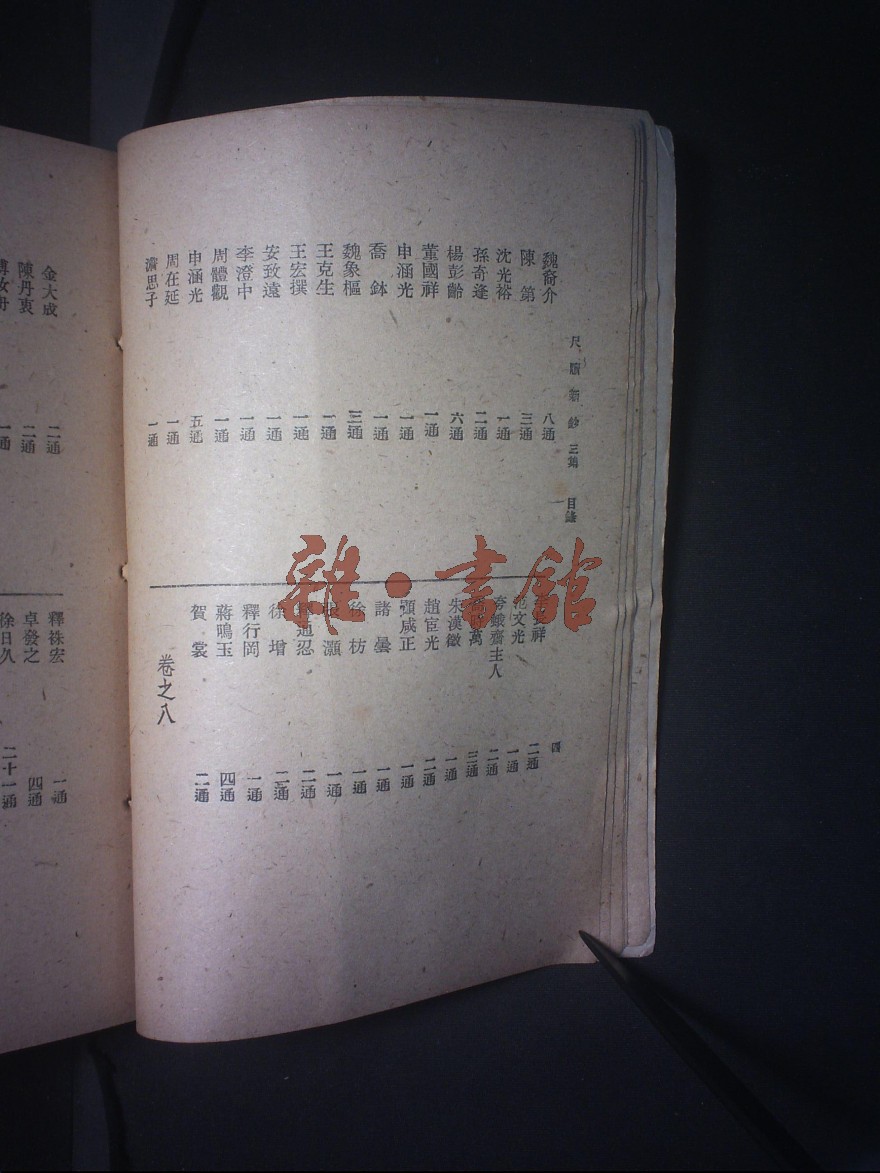 尺牘新鈔三集 目錄
四
魏裔介 八通
陳第 三通
沈光裕 一通
孫奇逢 二通
楊彭齡 六通
董國祥 一通
申涵光 一通
喬鉢 一通
魏象樞 三通
王克生 一通
王宏撰 一通
安致遠 一通
李澄中 一通
周體觀 一通
申涵光 五通
周在延 一通
濮思子 一通
祥 二通
范文光 一通
夸蛾齋主人 二通
萬 三通
朱漢徵 一通
趙宦光 二通
顧咸正 一通
諸曇 一通
徐枋 一通
灝 一通
通忍 二通
徐增 二通
釋行岡 一通
蔣鳴玉 四通
賀裳 二通
卷之八
金大成 二通
陳丹衷 二通
一通
釋袾宏 一通
卓發之 四通
徐日久 二十一通
雜·書館